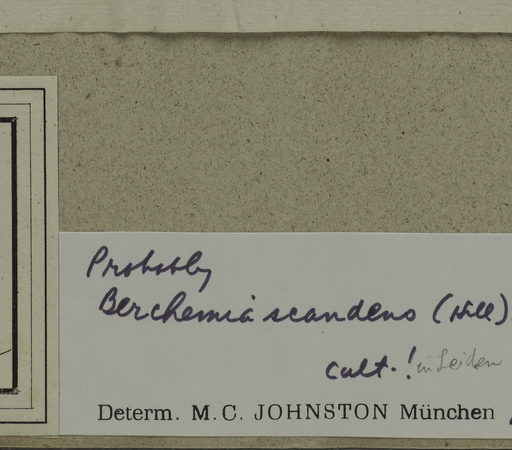 Probably
Berchemia scandens (Hill)
cult. ! in Leiden
Determ. M. C. JOHNSTON München